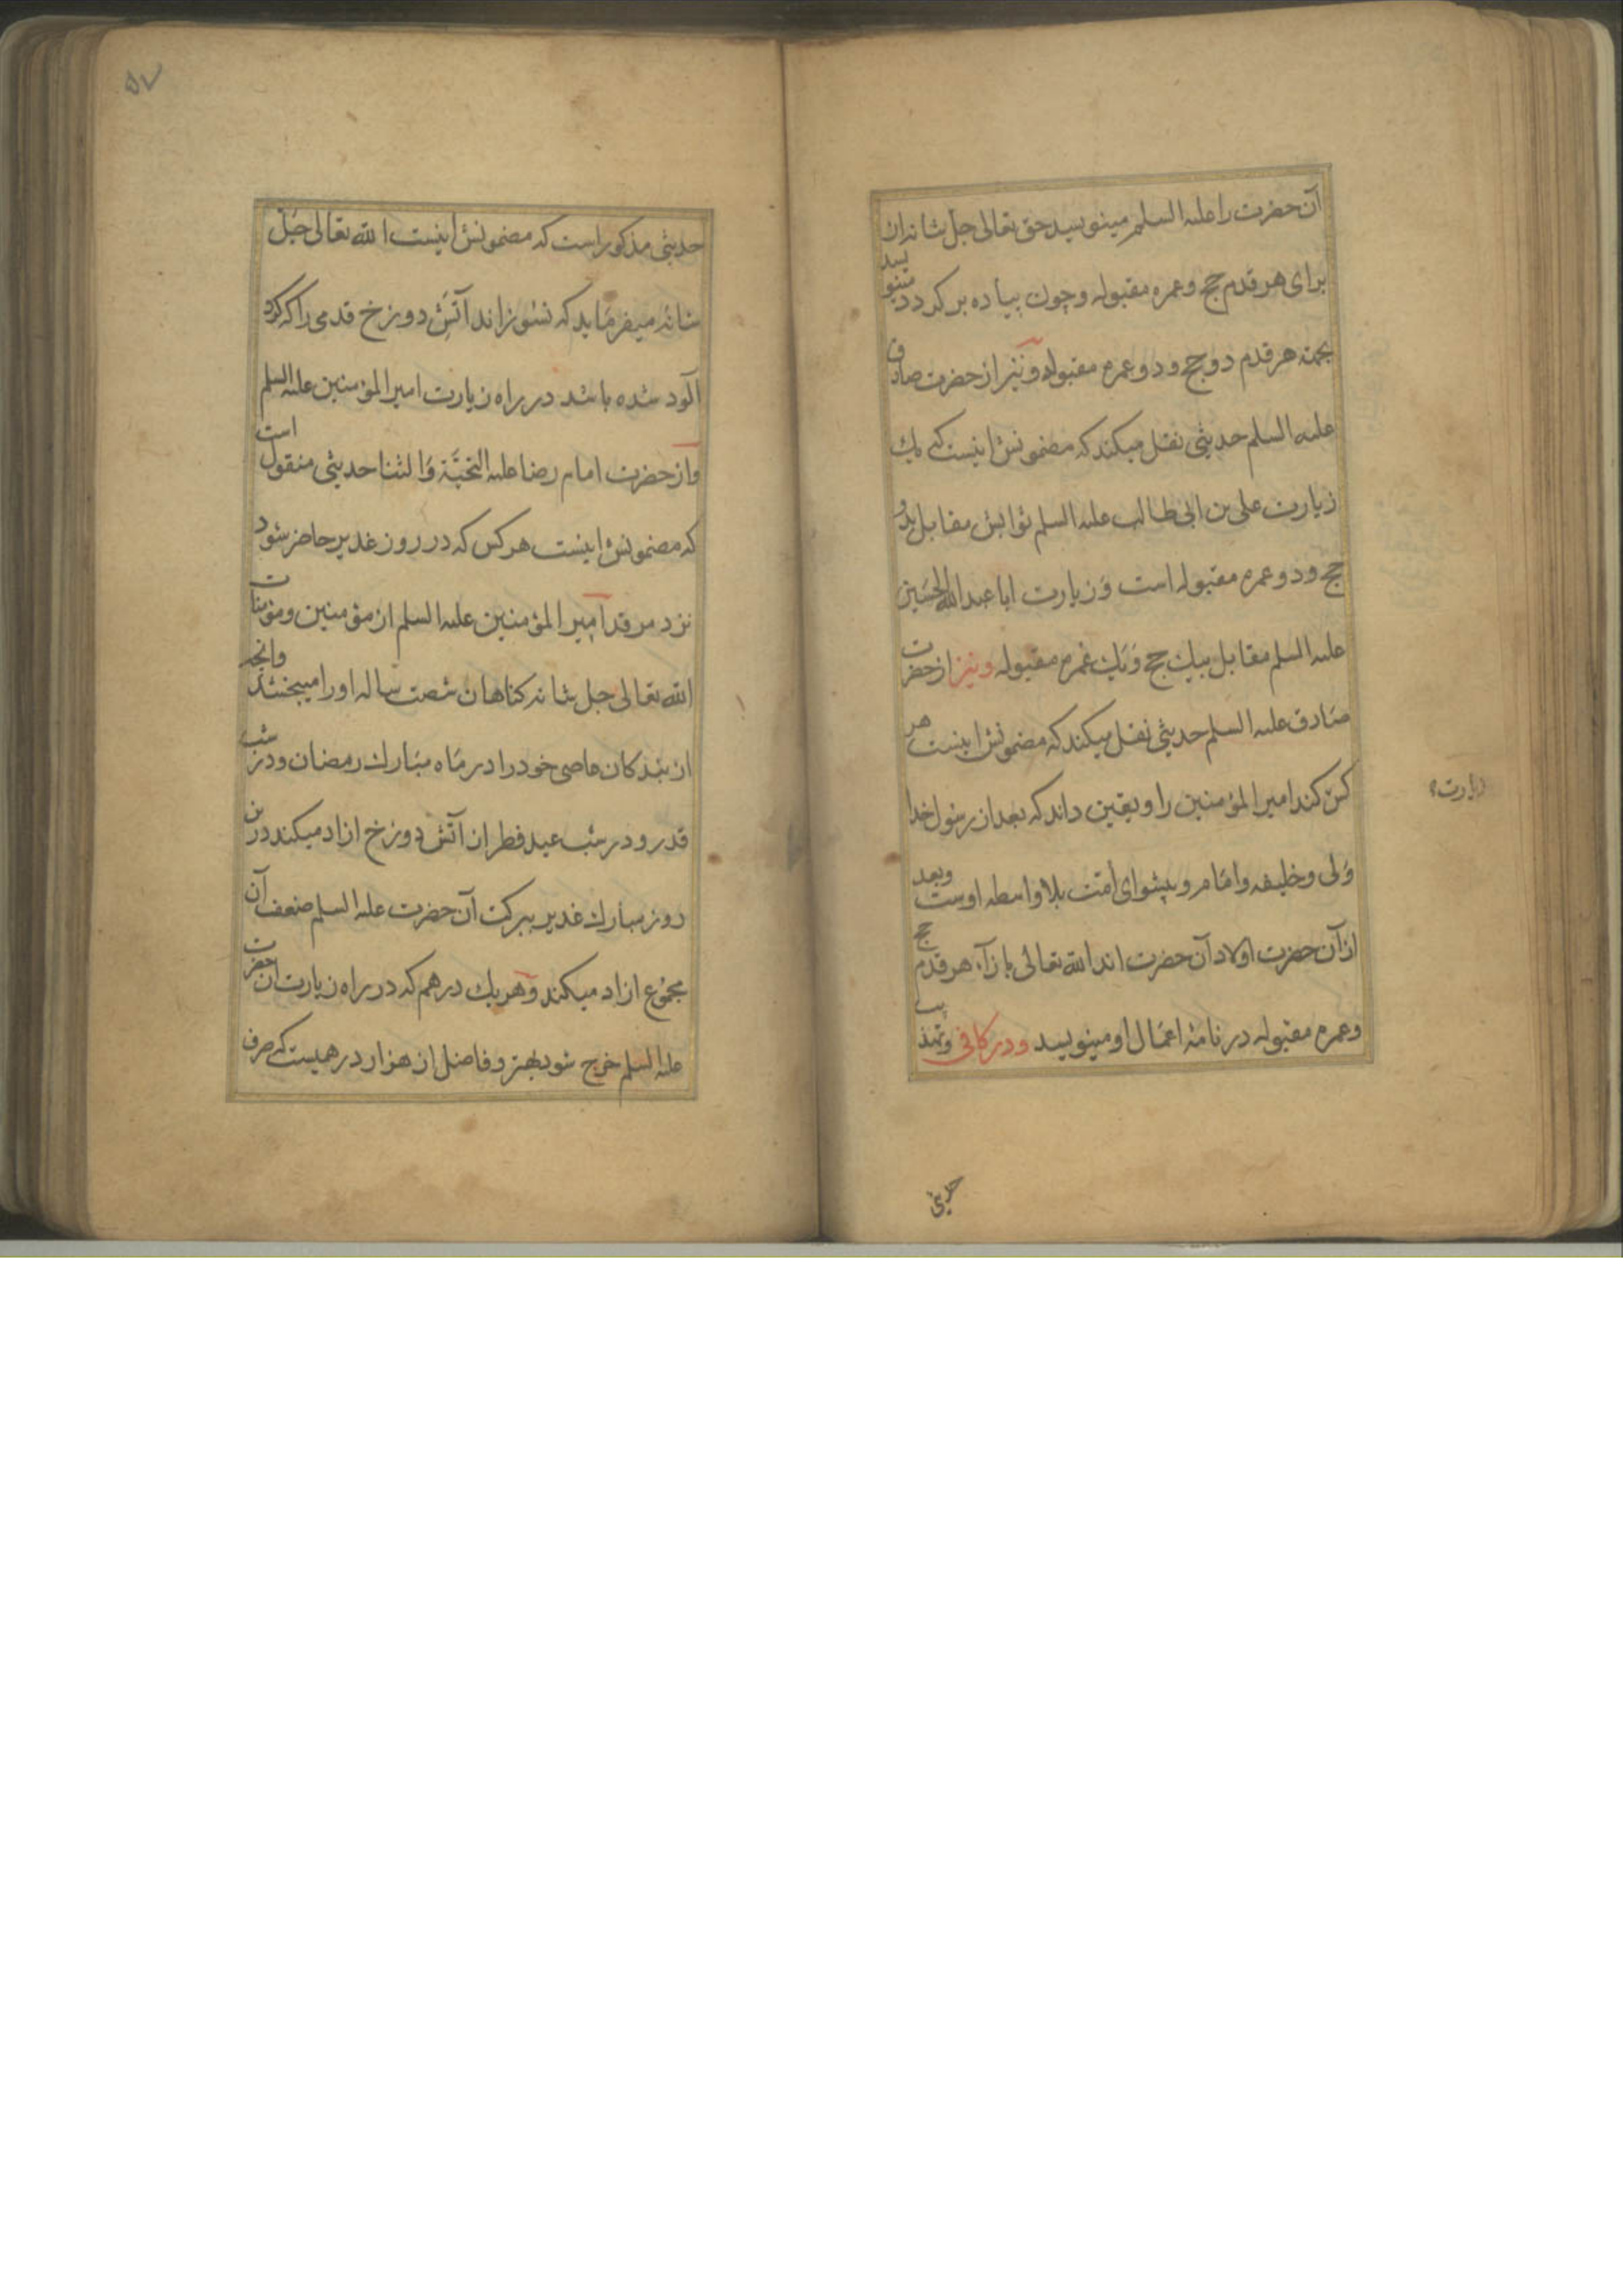 آن حضرت را علیه السلم مینویسد حق تعالی جل شانه ان
برای هر قدم حج و عمره مقبوله و چون پیاده بر کردد مینویسد
بجهته هر قدم دو حج و دو عمره مقبوله و نیز از حضرت صادق
علیه السلم حدیثی نقل میکند که مضمونش اینست که یک
زیارت علی بن ابی طالب علیه السلم ثوابش مقابل بدو
حج و دو عمره مقبوله است و زیارت ابا عبد الله الحسین
علیه السلم مقابل بیک حج و یک عمره مقبوله و نیز از حضرت
صادق علیه السلم حدیثی نقل میکند که مضمونش اینست هر
کس کند امیر المؤمنین را و یقین داند که بعد از رسول خدا
زیارت
ولی و خلیفه و امام و پیشوای امت بلا واسطه اوست و بعد
از آن حضرت اولاد آن حضرت اند الله تعالی بازآء هر قدم حج
و عمره مقبوله در نامهٔ اعمال او مینویسد و در کافی و تهذیب
حدیثی
۵۷
حدیثی مذکور است که مضمونش اینست الله تعالی جل
شانه میفرماید که نسوزاند آتش دوزخ قدمی را که کرد
آلود شده باشد در راه زیارت امیر المؤمنین علیه السلم
و از حضرت امام رضا علیه التحیّة و الثنا حدیثی منقول است
که مضمونش اینست هر کس که در روز غدیر حاضر شود
نزد مرقد امیر المؤمنین علیه السلم از مؤمنین و مؤمنات
الله تعالی جل شانه کناهان شصت ساله او را میبخشد و انچه
از بندکان عاصی خود را در ماه مبارک رمضان و در شب
قدر و در شب عید فطر از آتش دوزخ ازاد میکند درین
روز مبارک غدیر ببرکت آن حضرت علیه السلم ضعف آن
مجموع ازاد میکند و هر یک درهم که در راه زیارت ان حضرت
علیه السلم خرج شود بهتر و فاضل از هزار درهمیست که صرف